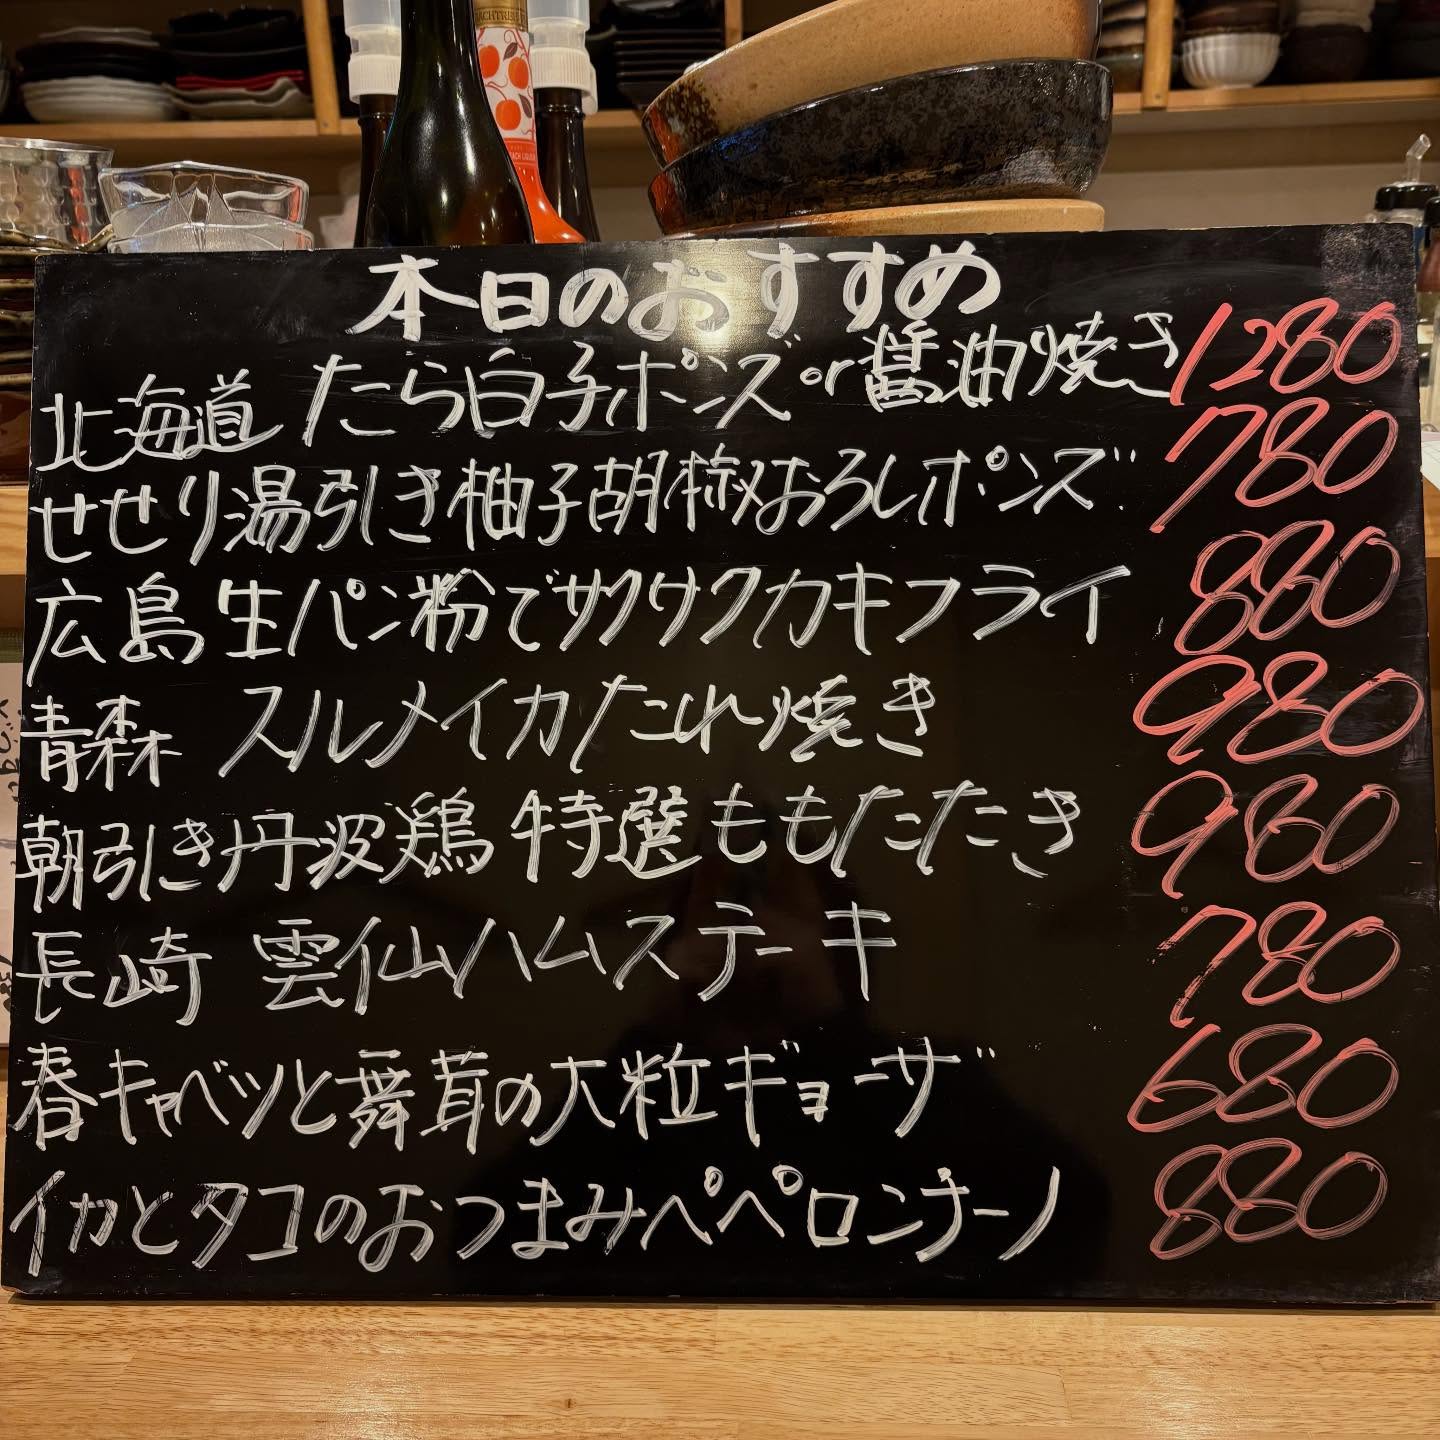 本日のおすすめ
北海道 たら白子ポンズor醤油焼き 1280
せせり湯引き柚子胡椒おろしポンズ 780
広島 生パン粉でサクサクカキフライ 880
青森 スルメイカたれ焼き 980
朝引き丹波鶏 特選ももたたき 980
長崎 雲仙ハムステーキ 780
春キャベツと舞茸の大粒ギョーザ 680
イカとタコのおつまみペペロンチーノ 880